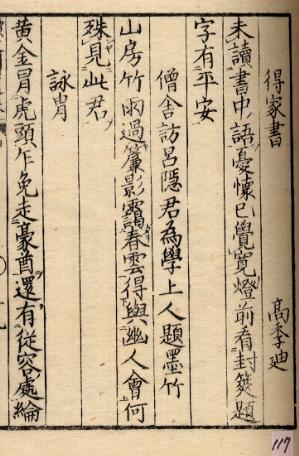 得家書　高季迪
未讀書中語憂懷已覺寬燈前看封篋題
字有平安
僧舍訪呂隱君為學上人題墨竹
山房竹雨過簾影靄春雲得與幽人會何
殊見此君
詠胄
黃金冐虎頭乍免走豪酋還有從容處綸
117